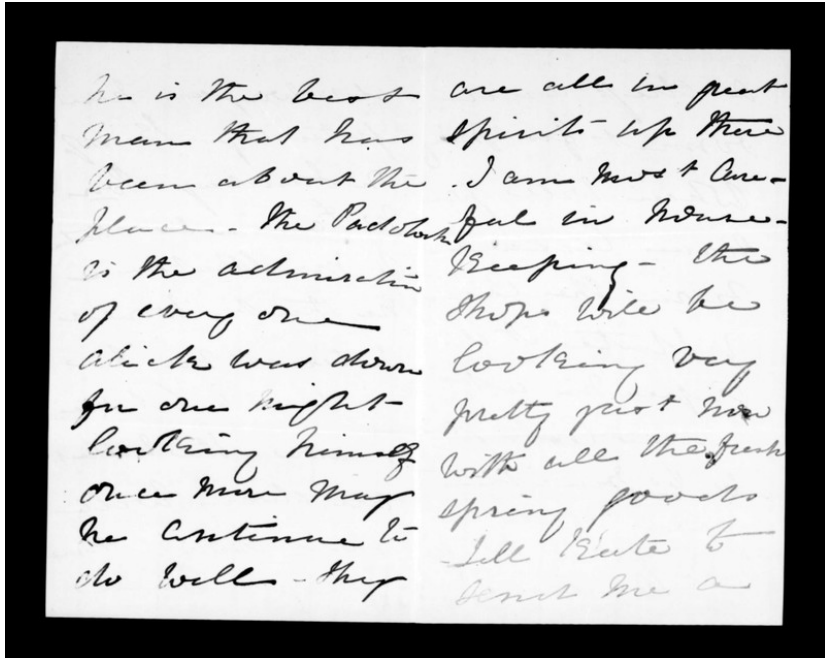 he is the best
man that has
been about the
place - the Padock
is the admiration
of every one
alick was down
for one night
looking himself
once more may
he continue to
do well - they
are all in great
spirits up there
. I am most Care-
ful in house-
keeping - the
shops will be
looking very
pretty just now
with all the fresh
spring goods
- Tell Kate to
send me a